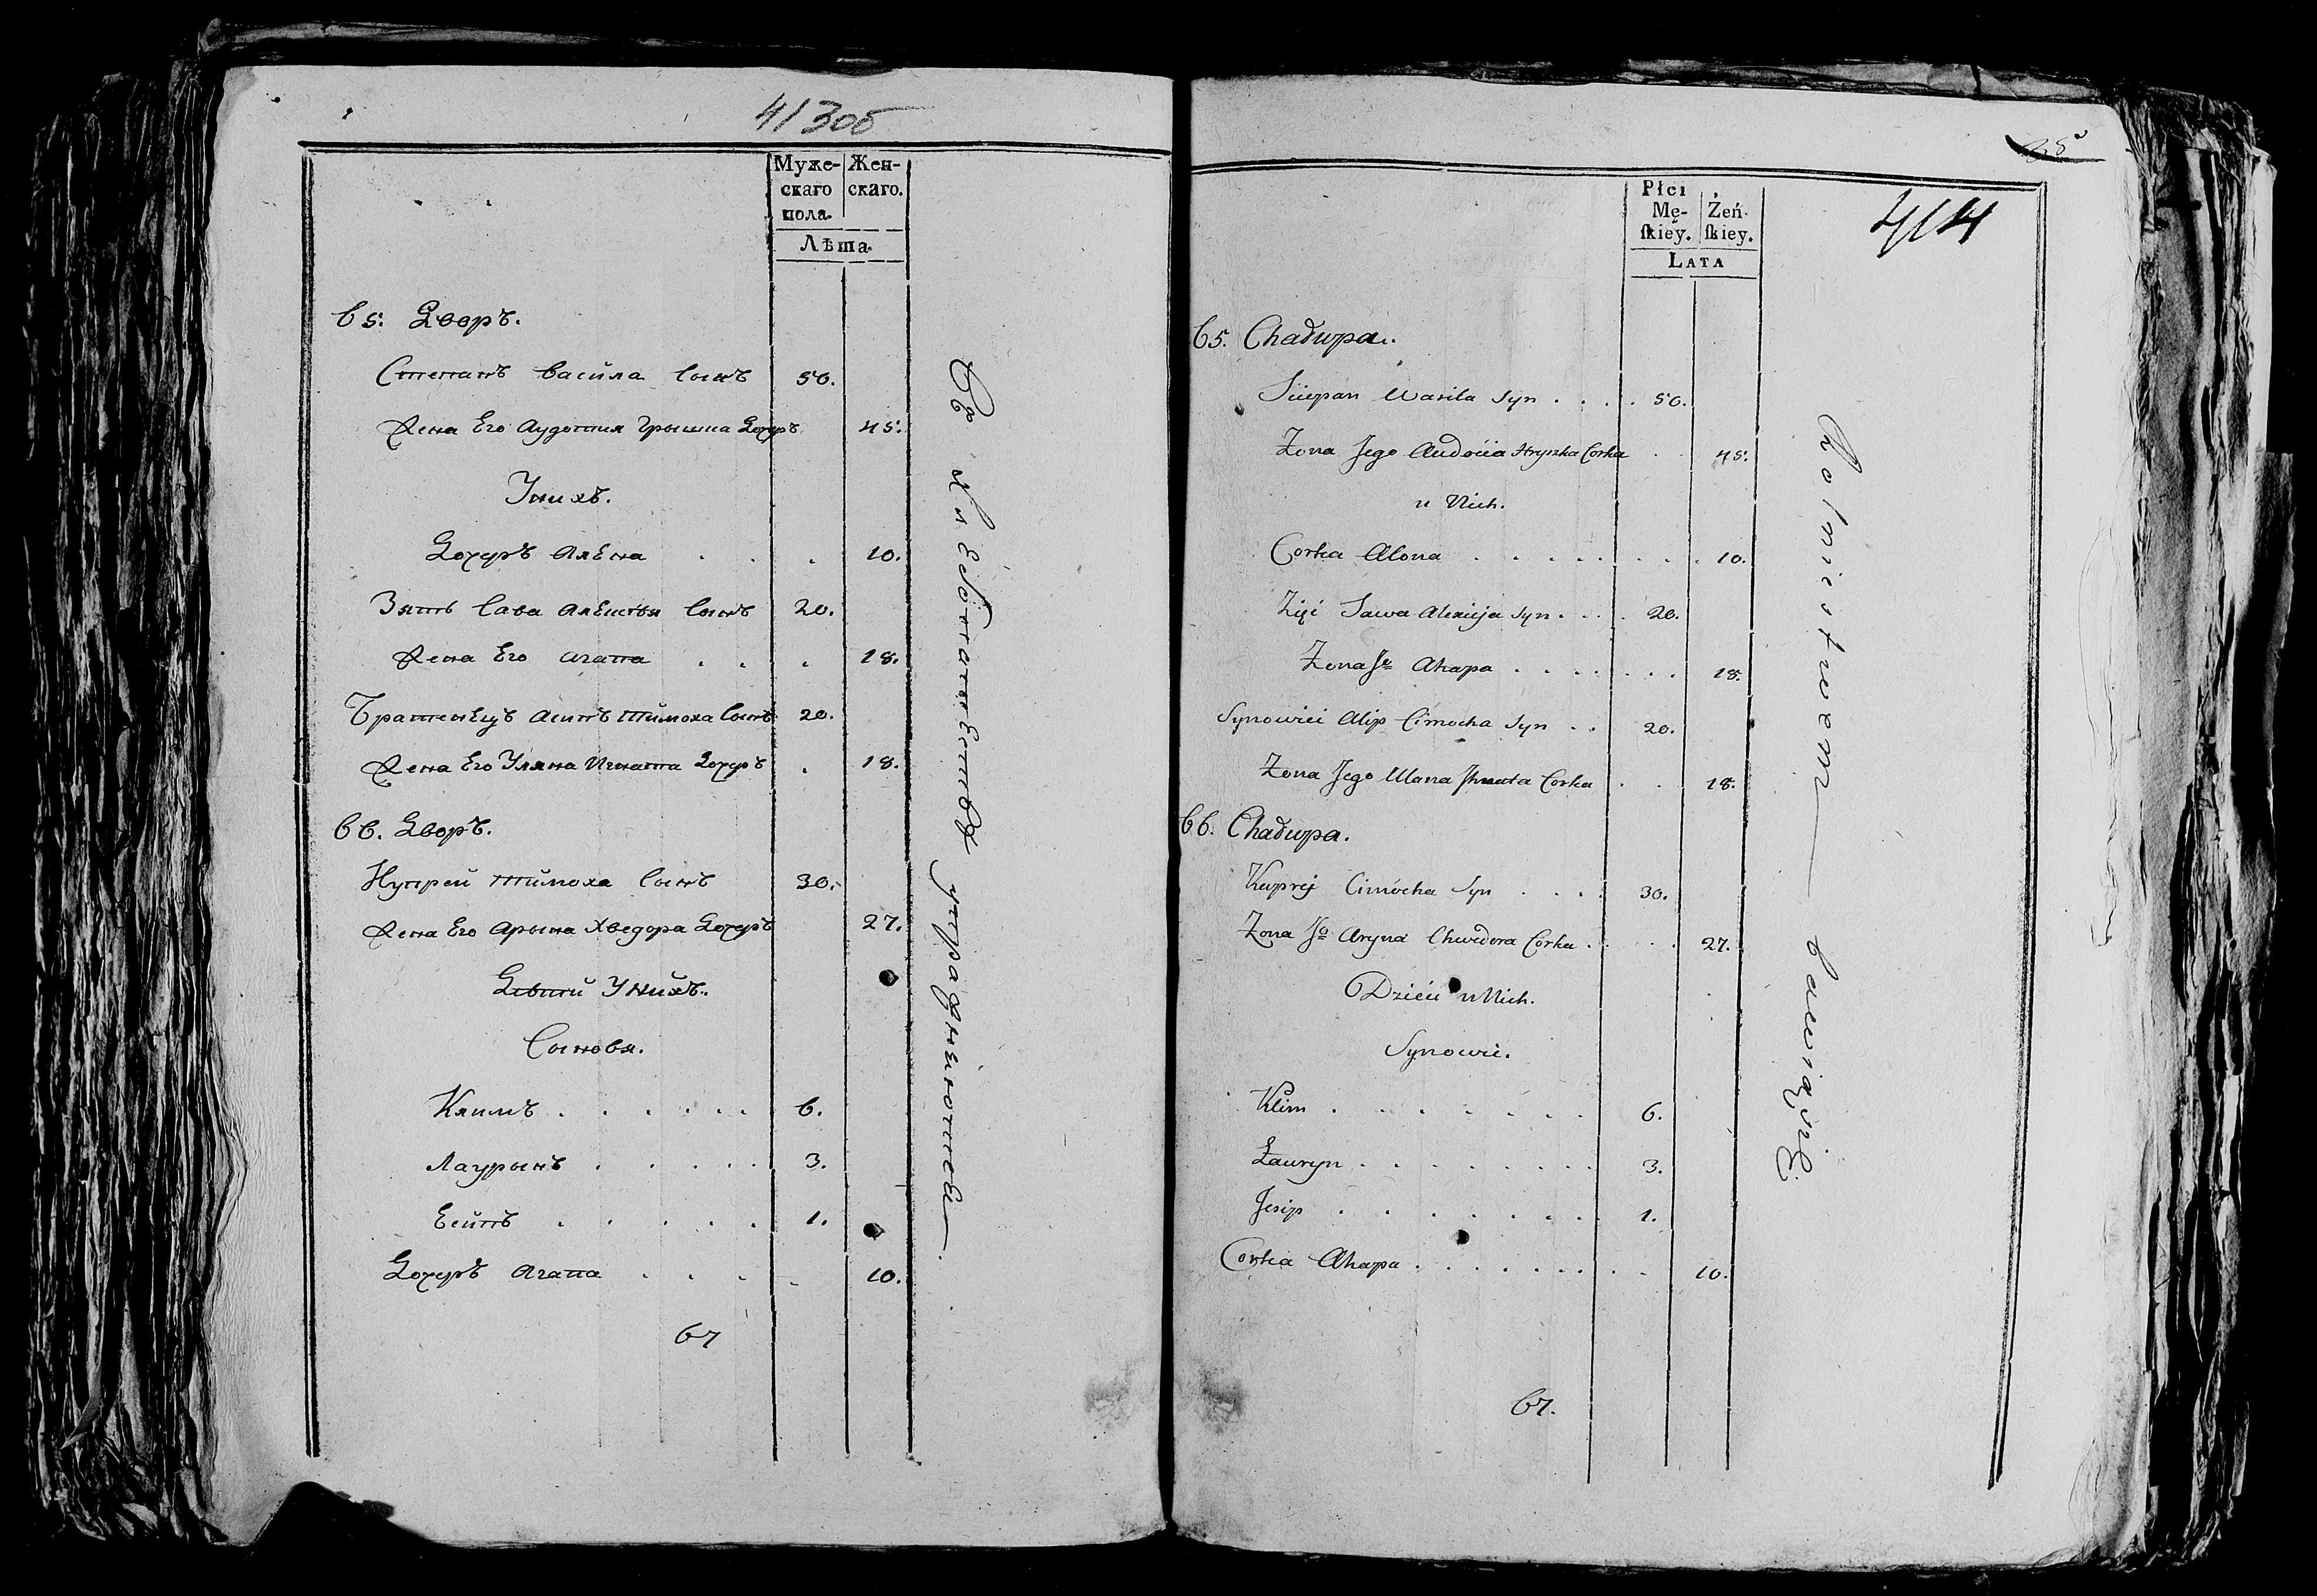 413об
Муже-
скаго
пола.
Жен-
скаго.
Лѣта.
65. Дворъ.
Степанъ Василя Сынъ 50.
Жена Его Аудотия Грышка Дочеръ 45.
Унихъ.
Дочеръ Алена . . . 10.
Зять Сава Алексѣя Сынъ 20.
Жена Его Агапа . . . 18.
Братенецъ Асипъ Тимоха Сынъ 20.
Жена Его Уляна Игната Дочеръ . 18.
66. Дворъ.
Купрей Тимоха Сынъ 30.
Жена Его Арына Хведора Дочеръ 27.
Дѣти Унихъ.
Сыновя.
Климъ . . . . . 6.
Лаурынъ . . . . 3.
Есипъ . . . . . 1.
Дочеръ Агапа . . . . 10.
67
Въ хлебопашествѣ упражняютсе
414
Płci
Mę-
ſkiey.
Żeń-
ſkiey.
LATA
65. Chałupa.
Sciepan Wasila Syn . . . . 50.
Żona Jego Audocia Hryszka Corka . . 45.
u Nich.
Corka Alona . . . . . . . . 10.
Zięć Sawa Alexieja Syn . . . . 20.
Żona Jo Ahapa . . . . . . . 18.
Synowiec Asip Cimocha Syn . . 20.
Żona Jego Ulana Jhnata Corka . . 18.
66. Chałupa.
Kuprej Cimocha Syn . . . . 30.
Żona Jo Aryna Chwedora Corka . . . . 27.
Dzieci u Nich.
Synowie.
Klim . . . . . . . 6.
Łauryn . . . . . . . . 3.
Jesip . . . . . . . . 1.
Corka Ahapa . . . . . . . . . 10.
67.
Rolnictwem bawią się